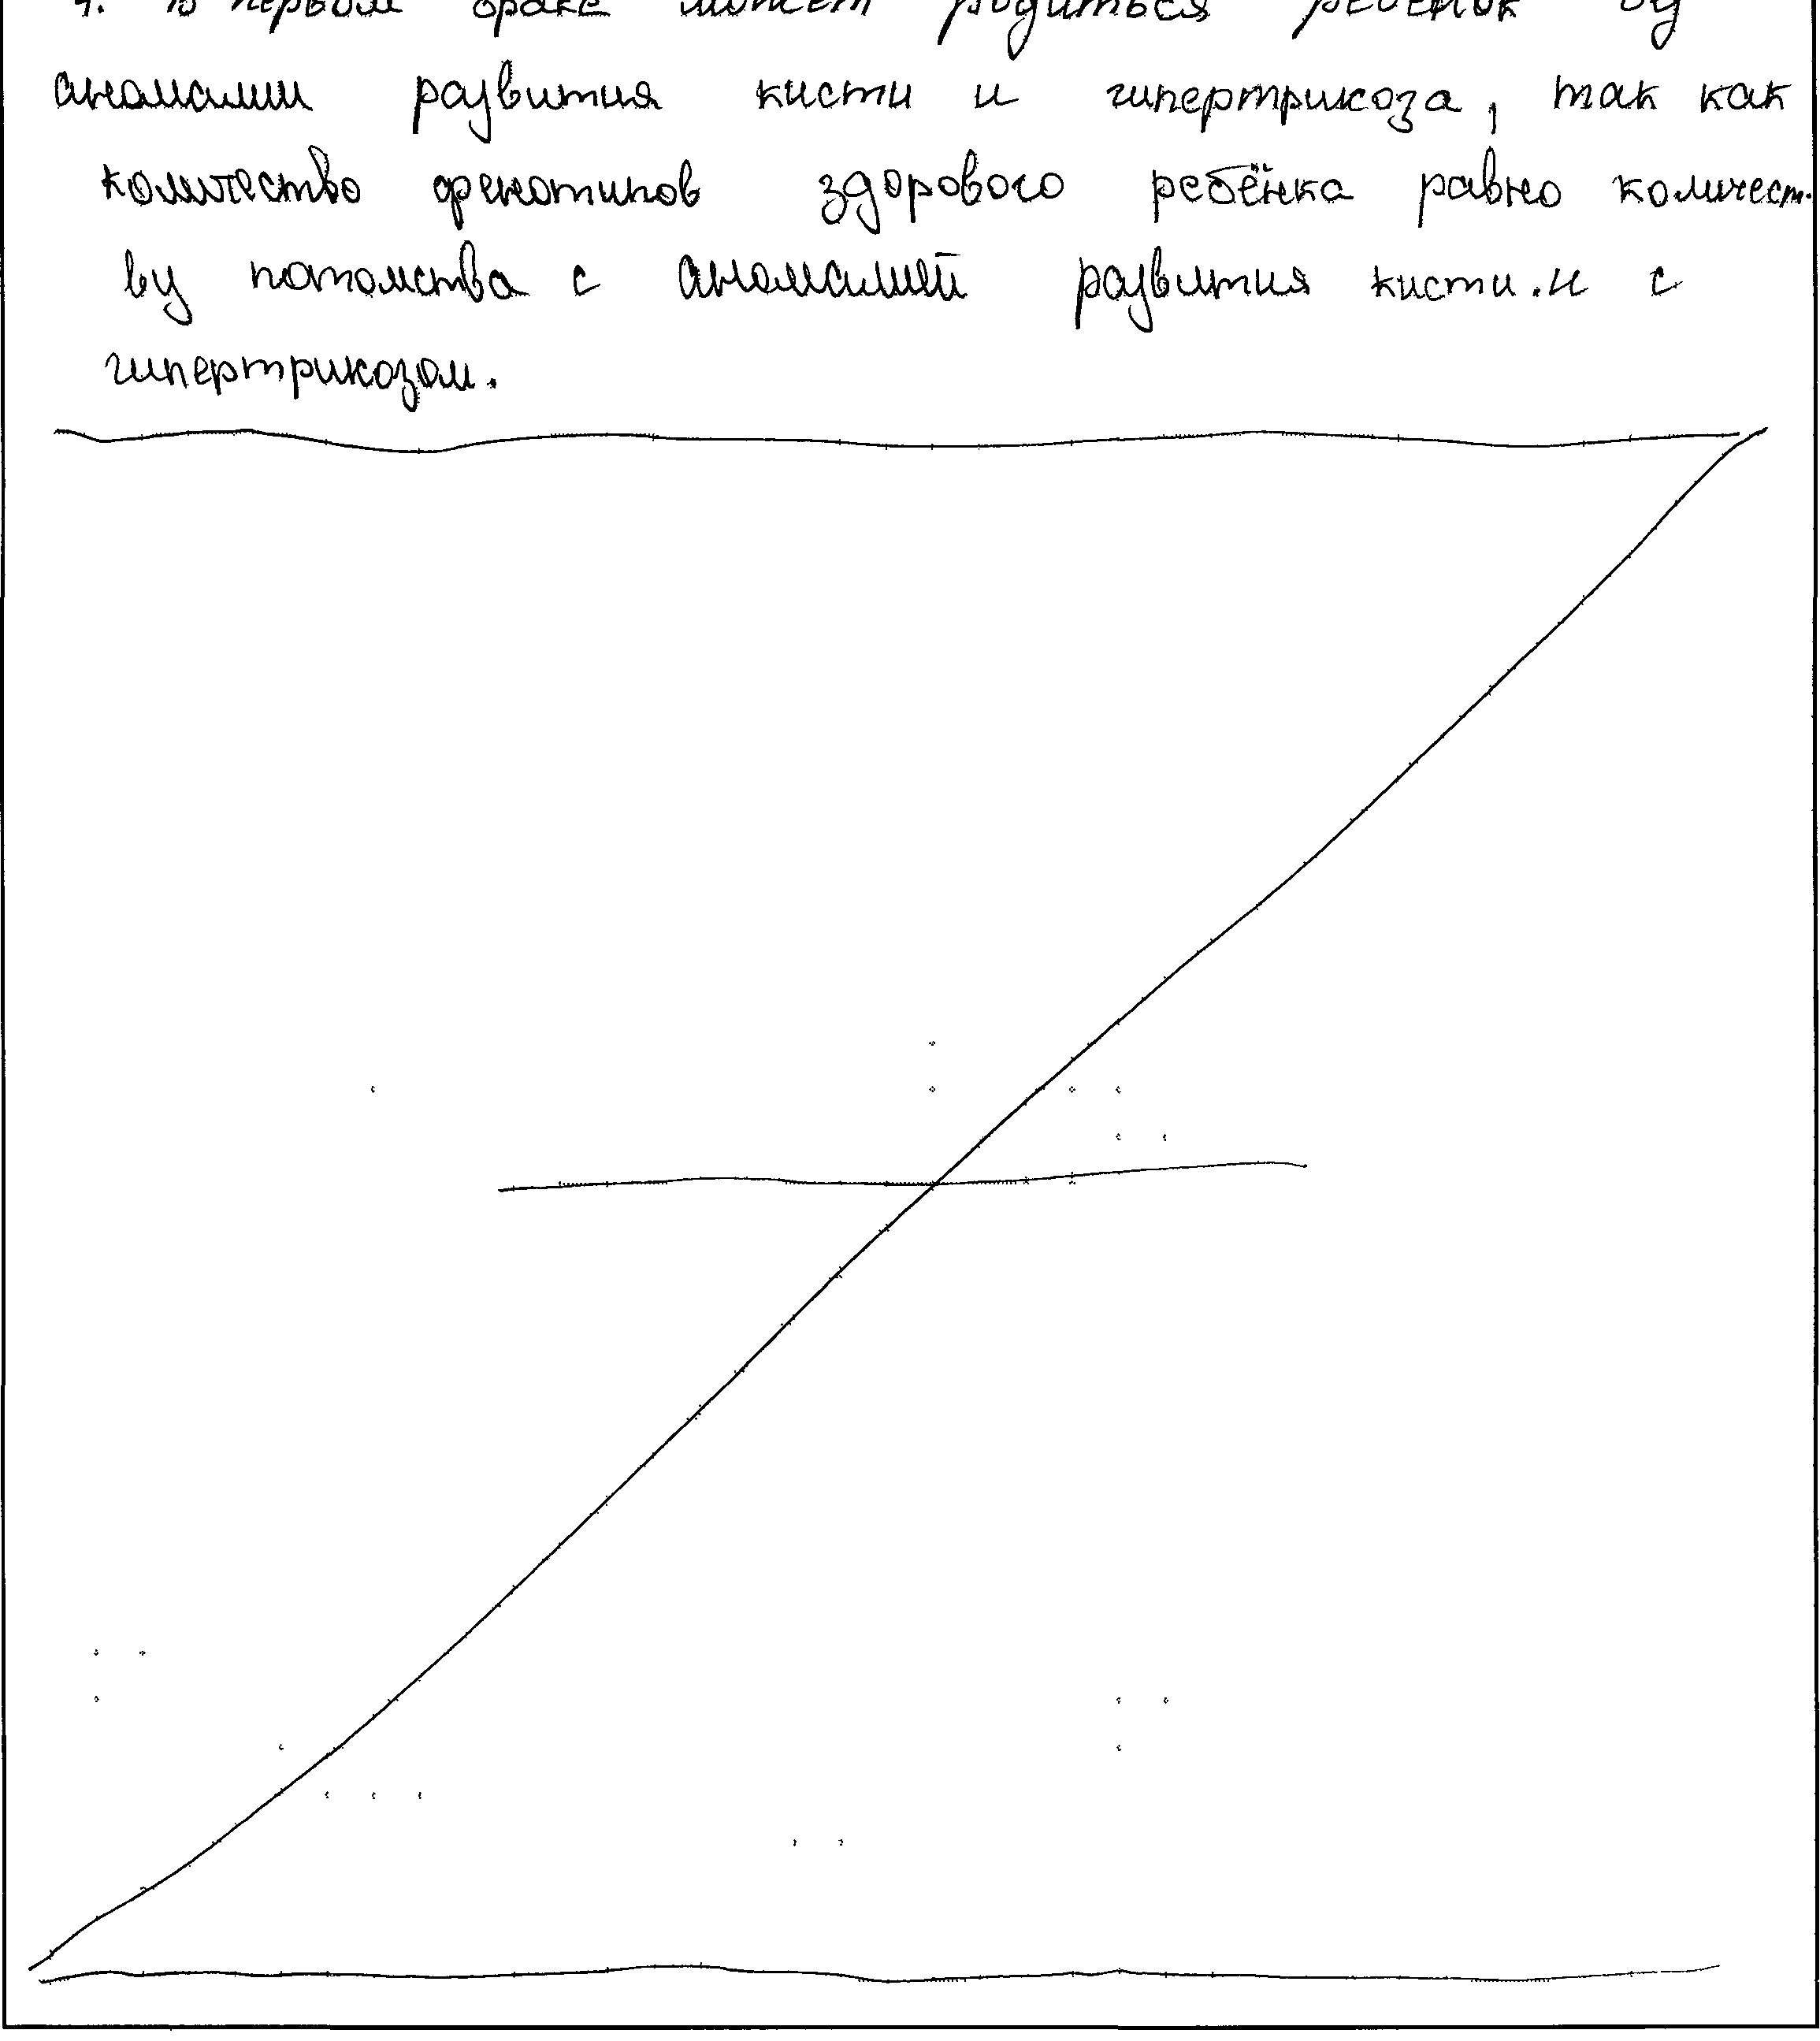 4. В первом браке может родиться ребёнок
аномалии развития кисти и гипертрикоза, так как
количество фенотипов здорового ребёнка равно количест-
ву потомства с аномалией развития кисти и с
гипертрикозом.